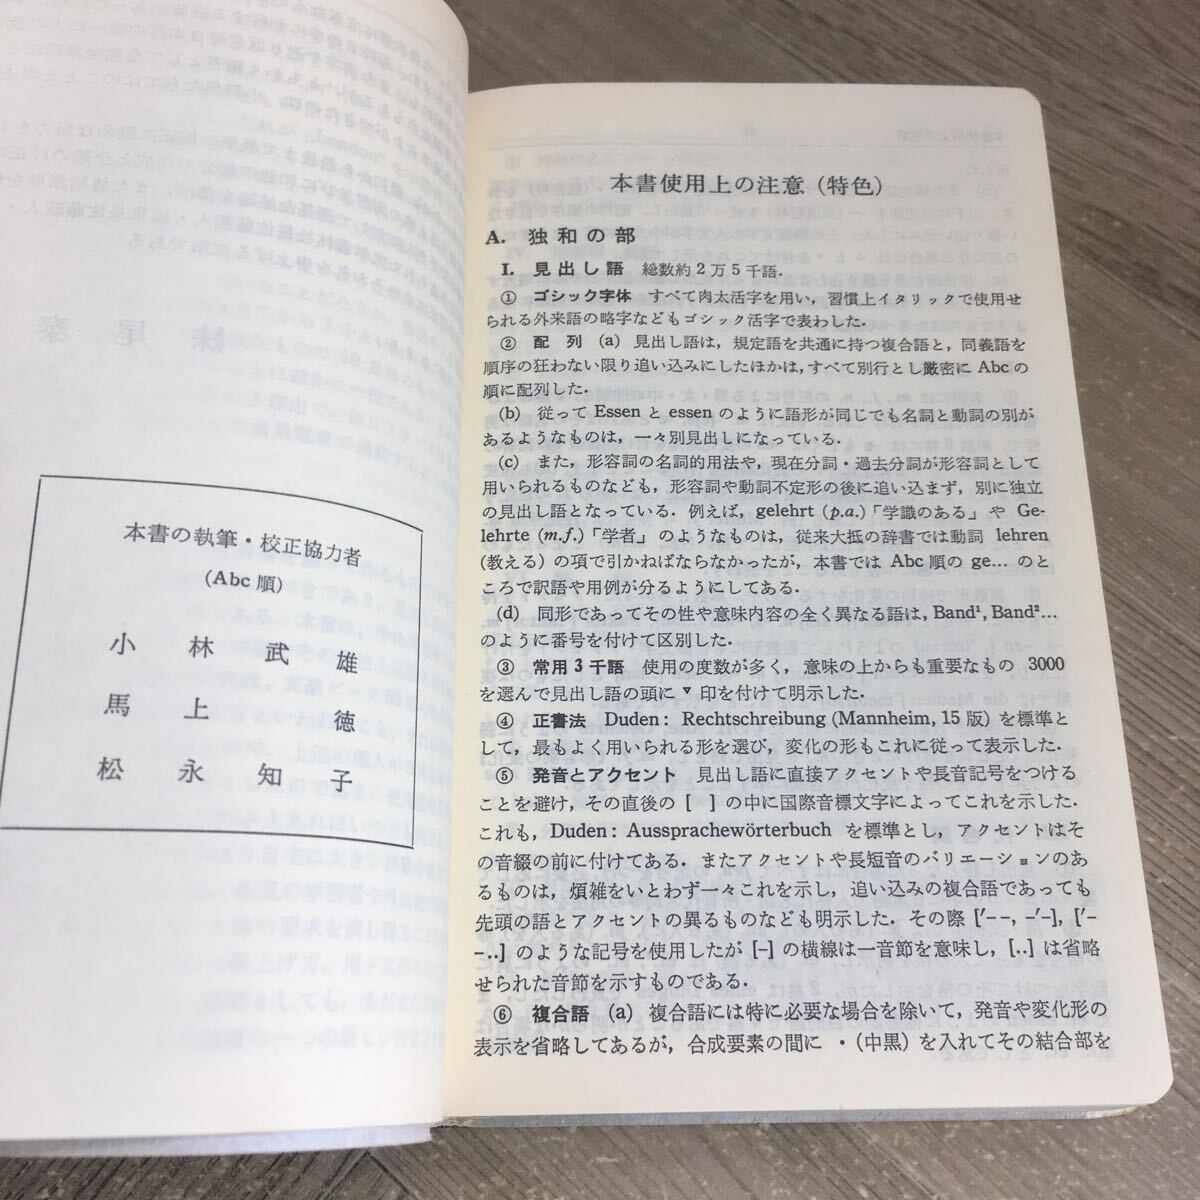 本書の執筆・校正協力者
(Abc 順)
小林武雄
馬上徳
松永知子
本書使用上の注意(特色)
A. 独和の部
I. 見出し語 総数約2万5千語.
① ゴシック字体 すべて肉太活字を用い，習慣上イタリックで使用せ
られる外来語の略字などもゴシック活字で表わした.
② 配列 (a) 見出し語は，規定語を共通に持つ複合語と，同義語を
順序の狂わない限り追い込みにしたほかは，すべて別行とし厳密に Abc の
順に配列した.
(b) 従って Essen と essen のように語形が同じでも名詞と動詞の別が
あるようなものは，一々別見出しになっている.
(c) また，形容詞の名詞的用法や，現在分詞・過去分詞が形容詞として
用いられるものなども，形容詞や動詞不定形の後に追い込まず，別に独立
の見出し語となっている. 例えば，gelehrt (p.a.)「学識のある」や Ge-
lehrte (m.f.)「学者」のようなものは，従来大抵の辞書では動詞 lehren
(教える) の項で引かねばならなかったが，本書では Abc 順の ge… のと
ころで訳語や用例が分るようにしてある.
(d) 同形であってその性や意味内容の全く異なる語は，Band¹, Band²…
のように番号を付けて区別した.
③ 常用3千語 使用の度数が多く，意味の上からも重要なもの 3000
を選んで見出し語の頭に ▼ 印を付けて明示した.
④ 正書法 Duden: Rechtschreibung (Mannheim, 15版) を標準と
して，最もよく用いられる形を選び，変化の形もこれに従って表示した.
⑤ 発音とアクセント 見出し語に直接アクセントや長音記号をつける
ことを避け，その直後の [ ] の中に国際音標文字によってこれを示した.
これも，Duden: Aussprachewörterbuch を標準とし，アクセントはそ
の音綴の前に付けてある. またアクセントや長短音のバリエーションのあ
るものは，煩雑をいとわず一々これを示し，追い込みの複合語であっても
先頭の語とアクセントの異るものなども明示した. その際 ['–-, -'-], ['-
-..] のような記号を使用したが [-] の横線は一音節を意味し，[..] は省略
せられた音節を示すものである.
⑥ 複合語 (a) 複合語には特に必要な場合を除いて，発音や変化形の
表示を省略してあるが，合成要素の間に ・(中黒) を入れてその結合部を